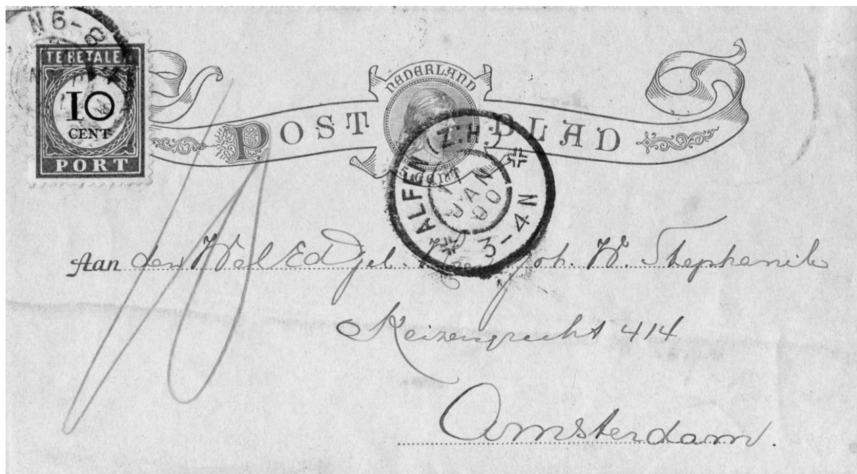 N6-8
TE BETALEN
10
CENT
PORT
NEDERLAND
POSTBLAD
ALFEN (Z:H.)
JAN
90
3-4N
Aan den Wel Ed gel. Joh. W. Stephanik
Keizersgracht 414
Amsterdam.